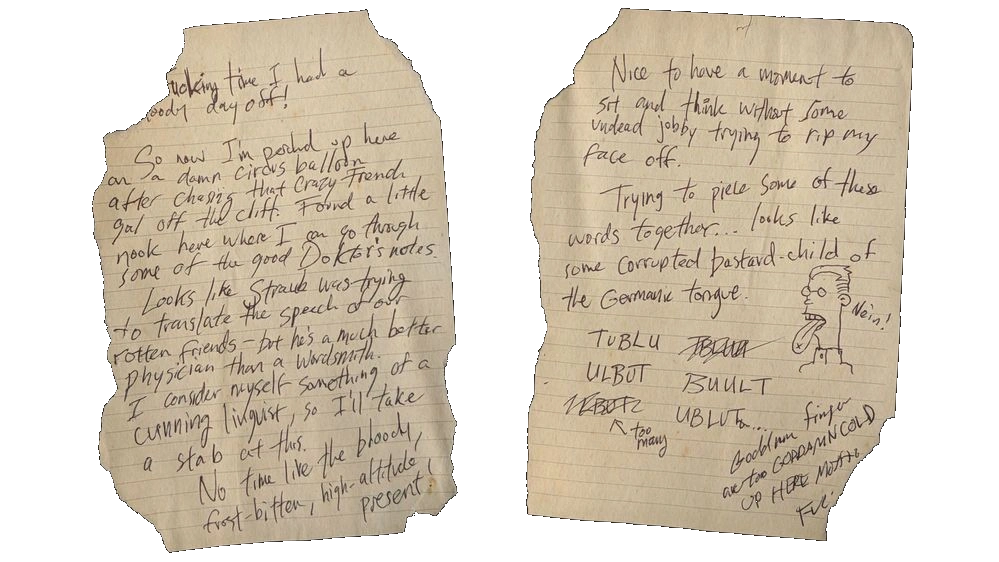 ucking time I had a
oody day off!
So now I'm perched up here
on a damn circus balloon
after chasing that crazy French
gal off the cliff. Found a little
nook here where I can go though
some of the good Doktor's notes.
Looks like Straub was trying
to translate the speech of our
rotten friends - but he's a much better
physician than a wordsmith.
I consider myself something of a
cunning linguist, so I'll take
a stab at this.
No time like the bloody,
frost-bitten, high-altitude,
present!
Nice to have a moment to
sit and think without some
undead jobby trying to rip my
face off.
Trying to piece some of these
words together... looks like
some corrupted bastard-child of
the Germanic tongue.
Nein!
TUBLU
ULBUT BUULT
UBLUT
too
many
Goddamn finger
are too GODDAMN COLD
UP HERE